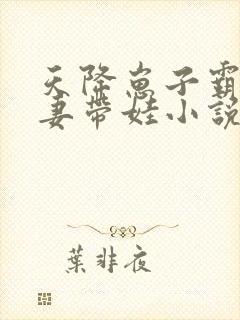 天降崽子霸
妻带娃小说
葉非夜